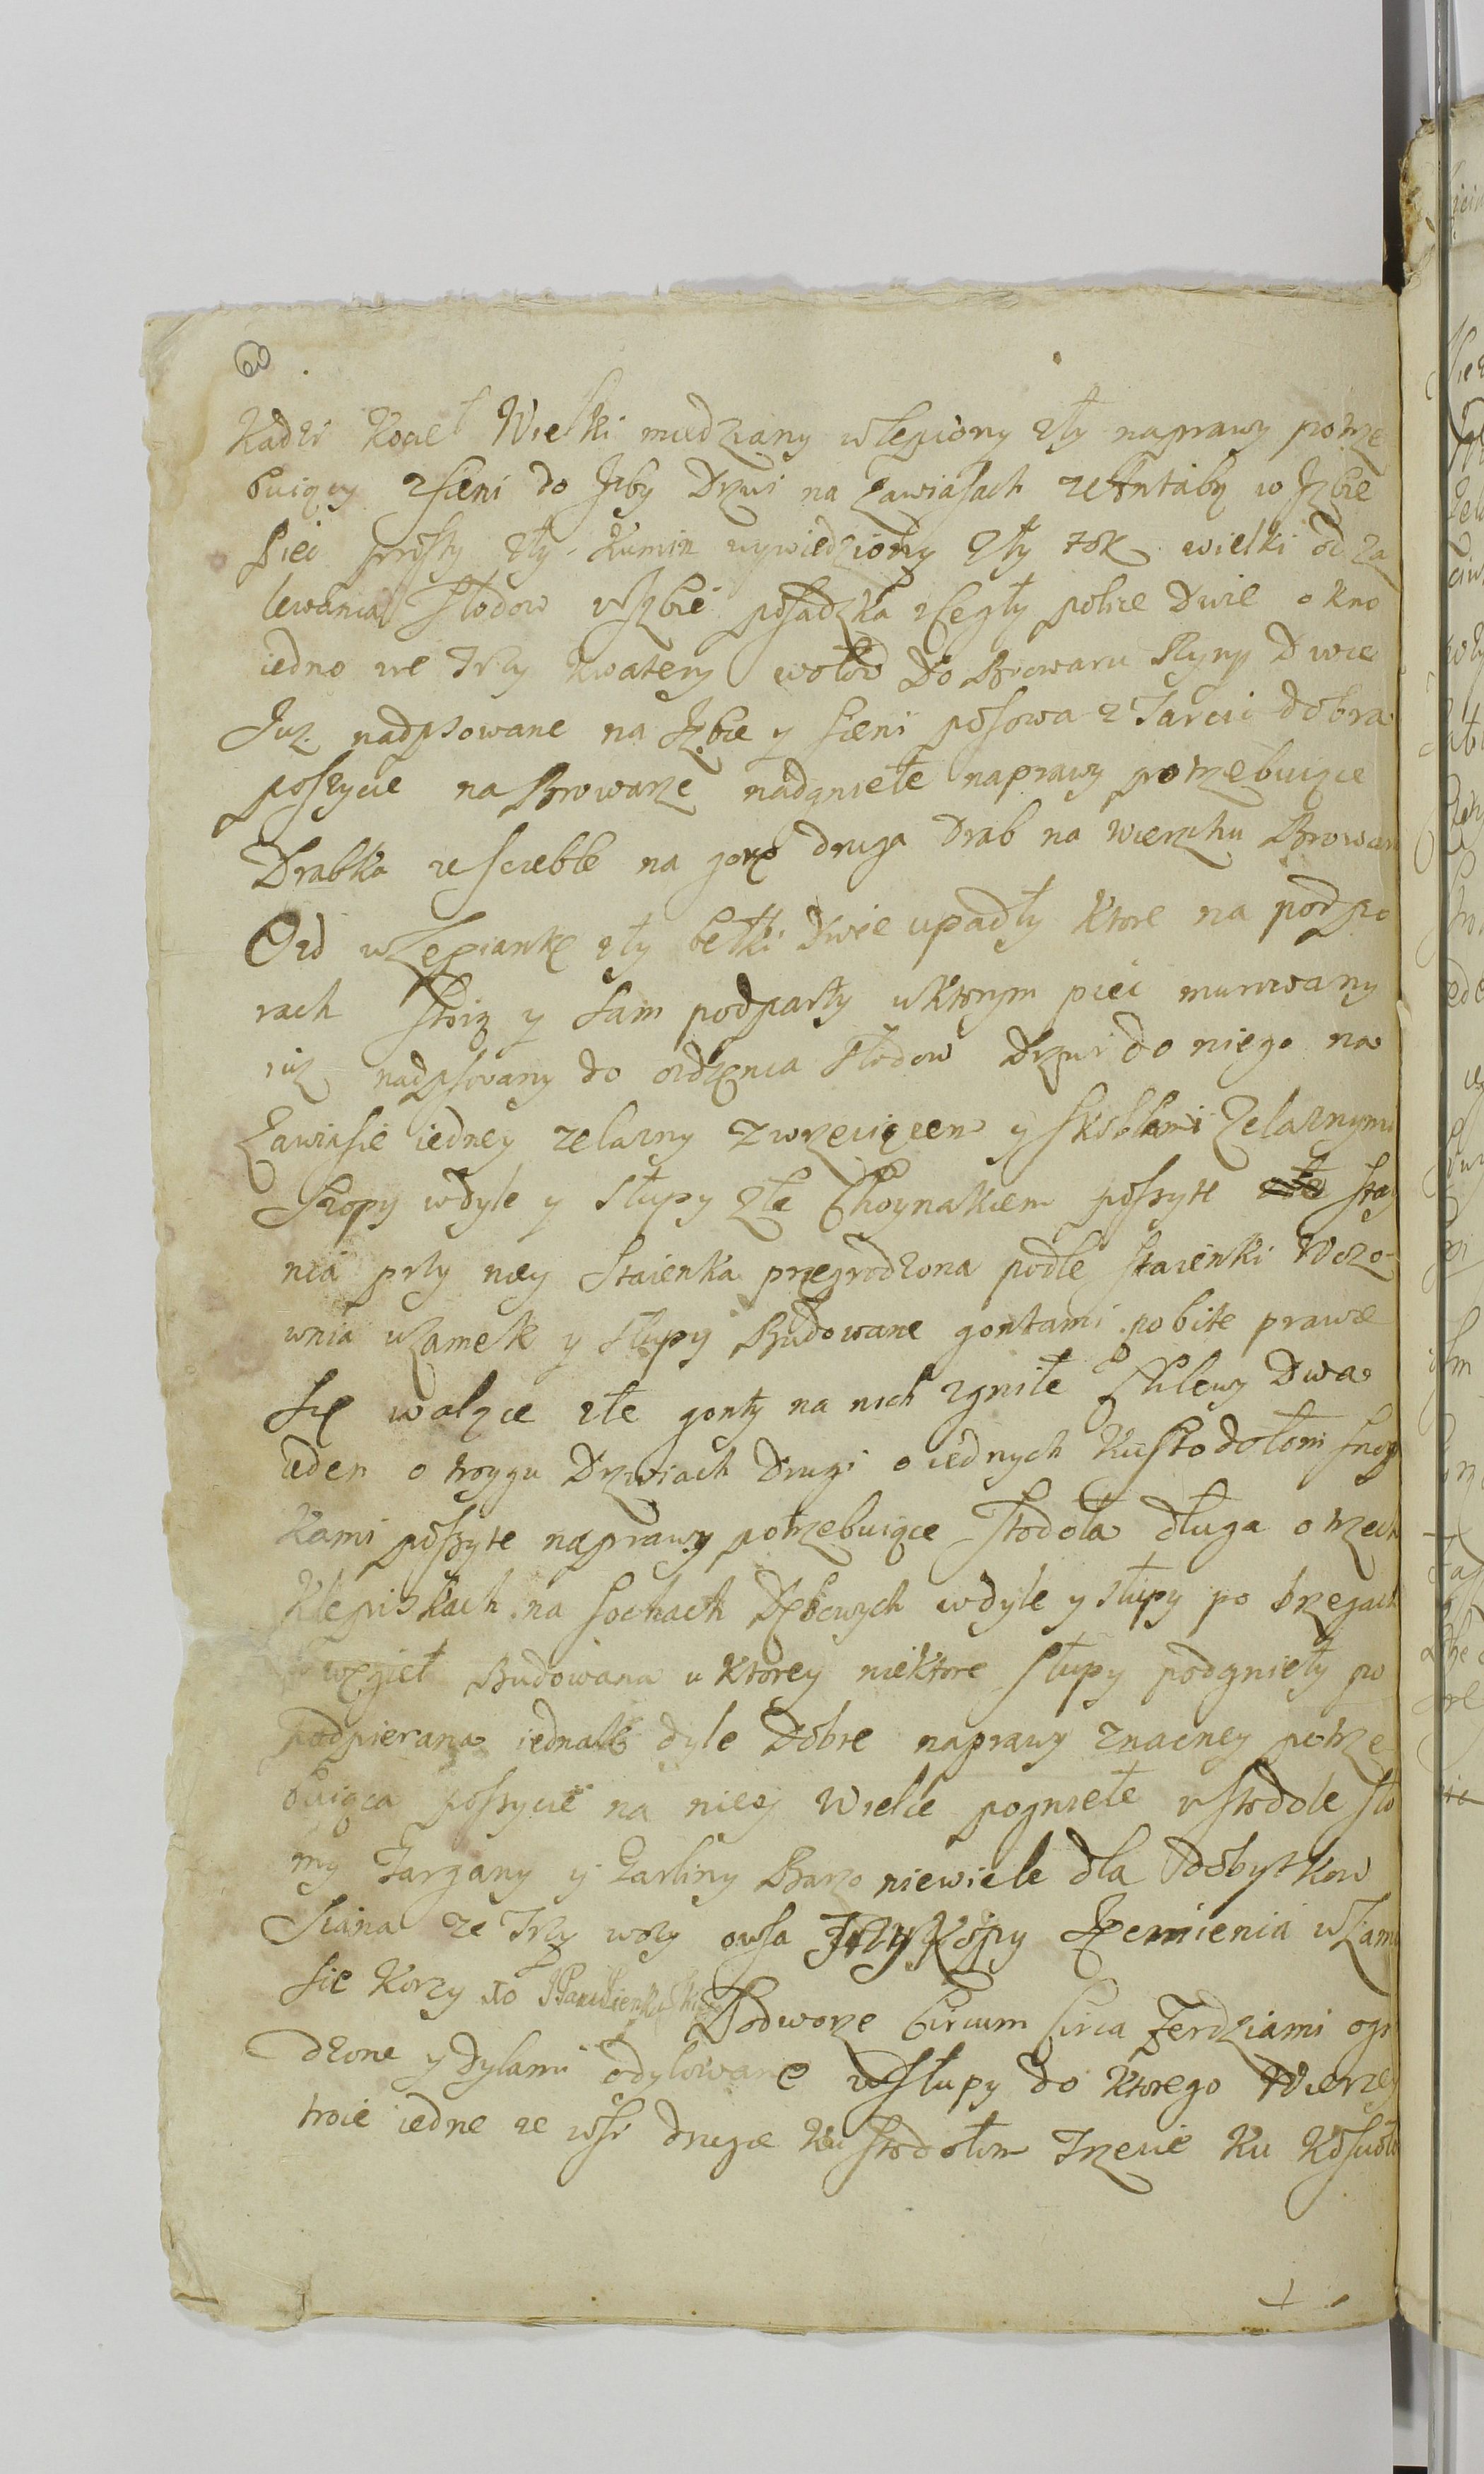 Kadzi Kocieł Wielki miedziany wlepiony zły naprawy potrze
buiący zsieni do Izby Drzwi na Zawiasach zeAntabą w Izbie
piec prosty zły Kumin wywiedziony zły tok wielki od za
lewania słodow wIzbie posadzka zCegły police Dwie okno
iedno we Trzy kwatery wołow Do Browaru Rynny Dwie
Iuz nadpsowane na Izbie y sieni posowa z Tarcic dobra
poszycie na Browarze nadgniełe naprawy potrzebuiące
Drabka o sczeble na gorę druga Drab na wierzchu Browaru
Ozd wLepiankę zły belki Dwie upadły ktore na podpo
rach stoią y sam podparty wktorym piec murowany
iuz nadpsowany do ozdzenia słodow Drzwi do niego na
Zawiasie iedney zelazny zwrzeciącem y skoblami Zelaznymi
Szopy wdyle y słupy złe Choynakiem poszyte sta
nia przy niey staienka przegrodzona podle staienki Wozo-
wnia wzamek y słupy Budowane gontami pobite prawie
się walące złe gonty na nich zgniłe Chlewy Dwa
ieden o troygu Drzwiach Drugi o iednych Kustodołom snop
kami poszyte naprawy potrzebuiące Stodoła długa o trzech
Klepiskach na sochach Dębowych wdyle y słupy po brzegach
węgieł Budowana u ktorey niektore słupy podgnieły po
podpierana iednak dyle Dobre naprawy znaczney potrze
buiąca poszycie na niey Wielce pogniełe wstodole sło
my Targany y Zarliny Barzo niewiele dla dobytkow
Siana ze Trzy wozy owsa Trzy Kopy Ięcmienia wZiarn
sie Korzy do
Podworze Circum Circa Zerdziami ogr
dzone y Dylami odylowane wsłupy do ktorego Wierzey
troie iedne ze wsi drugie ku stodołom Trzecie ku Kosciołowi